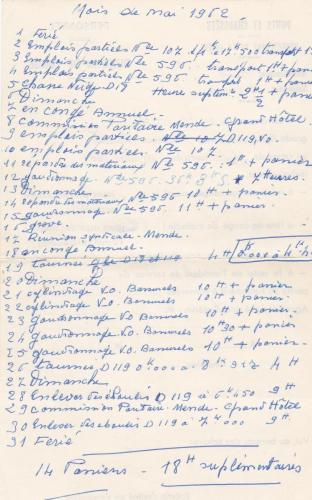 Mois de mai 1962
1 Ferié
2 Emplois partiels Nle 107
3 Emplois partiels Nle 595. transport 1H + panier
4 Emplois partiels Nle 595
5 chasse Neige D 19 Heure suptm
6 Dimanche
7 en congé Annuel
8 commission Paritaire Mende - Grand Hôtel
9 emplois partiels. D 119, V.o.
10 emplois partiels Nle 107.
11 répandre des matériaux Nle 595. 1H + panier
12 gaudronnage Nle 595. 7 Heures.
13 Dimanche
14 répandre les matériaux Nle 595 10H + panier.
15 gaudronnage Nle 595 11H + panier.
16 grève
17 Réunion syndicale - Mende.
18 en congé Annuel.
19 Tournée 4H
20 Dimanche
21 cylindrage V.o. Banuels 10H + panier
22 cylindrage V.o. Banuels 10H + panier.
23 gaudronnage V.o. Banuels 10H + panier
24 gaudronnage V.o. Banuels 10H30 + panier
25 gaudronnage V.o. Banuels 10H + panier.
26 tournée D 119 4H
27 Dimanche
28 Enlever des éboulis D 119 à 6k450 9H
29 commission Paritaire - Mende - Grand Hôtel
30 Enlever des éboulis D 119 à 7k000 9H.
31 Ferié
14 Paniers - 18H suplémentaires